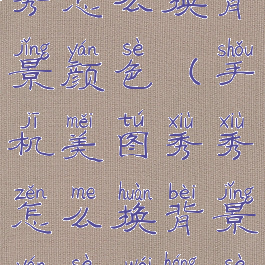 秀怎么换背
jǐng yán sè shǒu
景颜色（手
jī měi tú xiù xiù
机美图秀秀
zěn me huàn bèi jǐng
怎么换背景